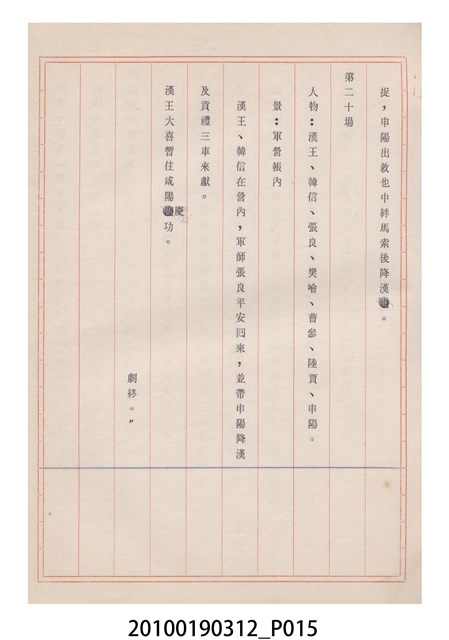 捉，申陽出救也中絆馬索後降漢。
第二十場
人物：漢王、韓信、張良、樊噲、曹參、陸賈、申陽。
景：軍營帳內
漢王、韓信在營內，軍師張良平安回來，並帶申陽降漢
及貢禮三車來獻。
漢王大喜暫住咸陽慶功。
劇終。〃
20100190312_P015